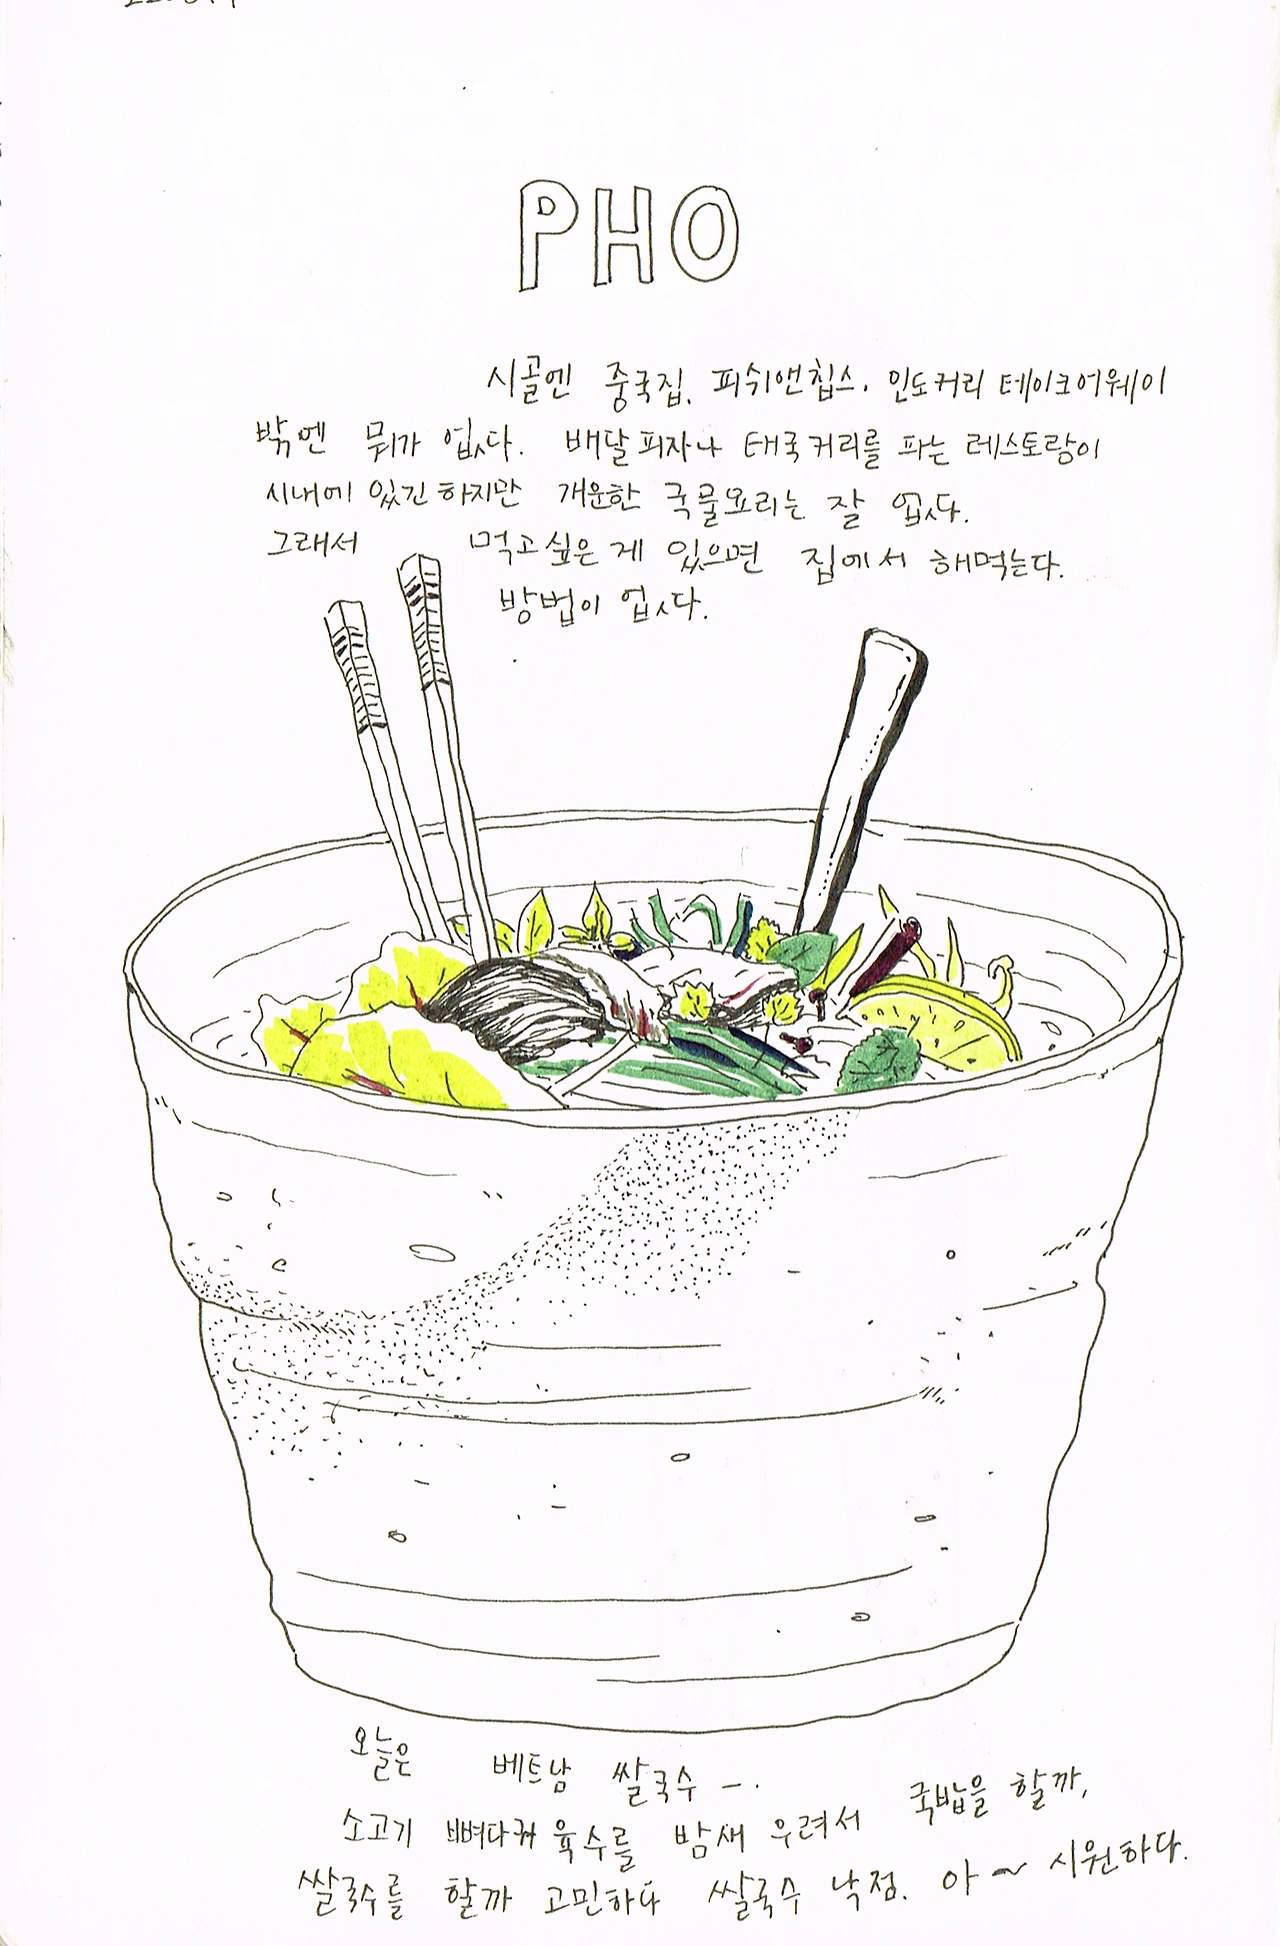 PHO
시골엔 중국집, 피쉬앤칩스, 인도커리 테이크어웨이
밖엔 뭐가 없다. 배달피자나 태국커리를 파는 레스토랑이
시내에 있긴 하지만 개운한 국물요리는 잘 없다.
그래서 먹고싶은 게 있으면 집에서 해먹는다.
방법이 없다.
오늘은 베트남 쌀국수 -.
소고기 뼈다귀 육수를 밤새 우려서 국밥을 할까,
쌀국수를 할까 고민하다 쌀국수 낙점. 아~ 시원하다.